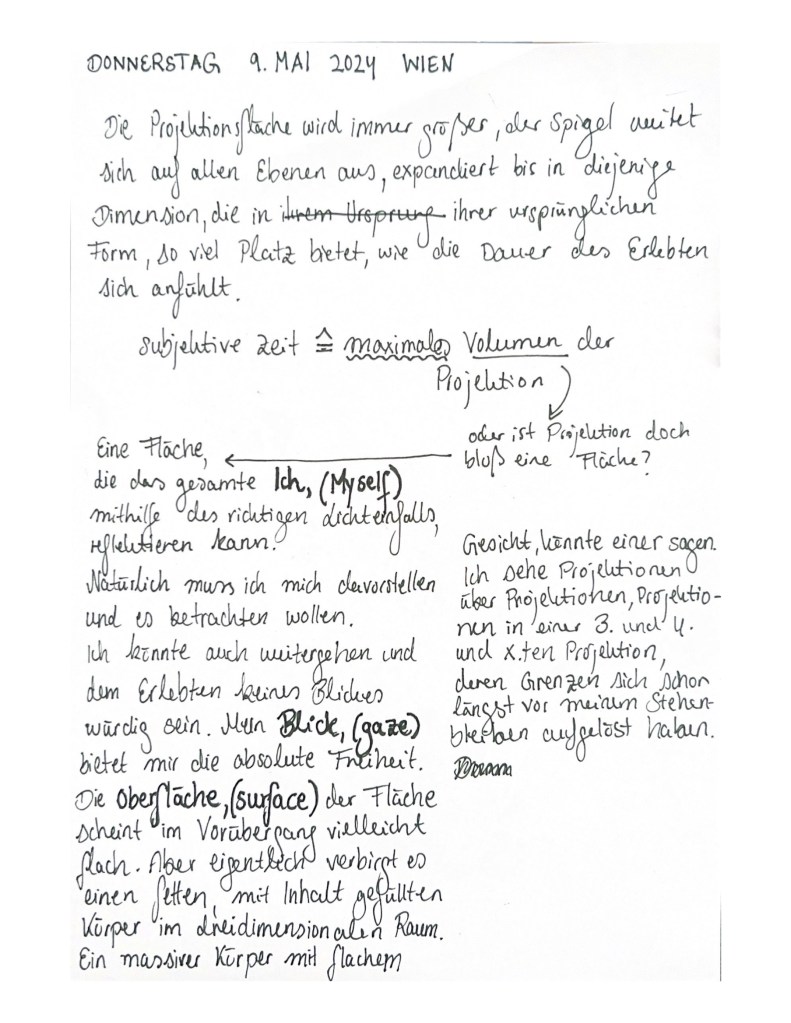 DONNERSTAG 9. MAI 2024 WIEN
Die Projektionsfläche wird immer größer, der Spigel weitet
sich auf allen Ebenen aus, expandiert bis in diejenige
Dimension, die in ihrem Ursprung ihrer ursprünglichen
Form, so viel Platz bietet, wie die Dauer des Erlebten
sich anfühlt.
subjektive Zeit ≙ maximales Volumen der
Projektion
oder ist Projektion doch
bloß eine Fläche?
Eine Fläche,
die das gesamte Ich, (Myself)
mithilfe des richtigen Lichteinfalls,
reflektieren kann.
Natürlich muss ich mich davorstellen
und es betrachten wollen.
Ich könnte auch weitergehen und
dem Erlebten keines Blickes
würdig sein. Mein Blick, (gaze)
bietet mir die absolute Freiheit.
Die Oberfläche, (surface) der Fläche
scheint im Vorübergang vielleicht
flach. Aber eigentlich verbirgt es
einen fetten, mit Inhalt gefüllten
Körper im dreidimensionalen Raum.
Ein massiver Körper mit flachem
Gesicht, könnte einer sagen.
Ich sehe Projektionen
über Projektionen, Projektio-
nen in einer 3. und 4.
und x.ten Projektion,
deren Grenzen sich schon
längst vor meinem Stehen-
bleiben aufgelöst haben.